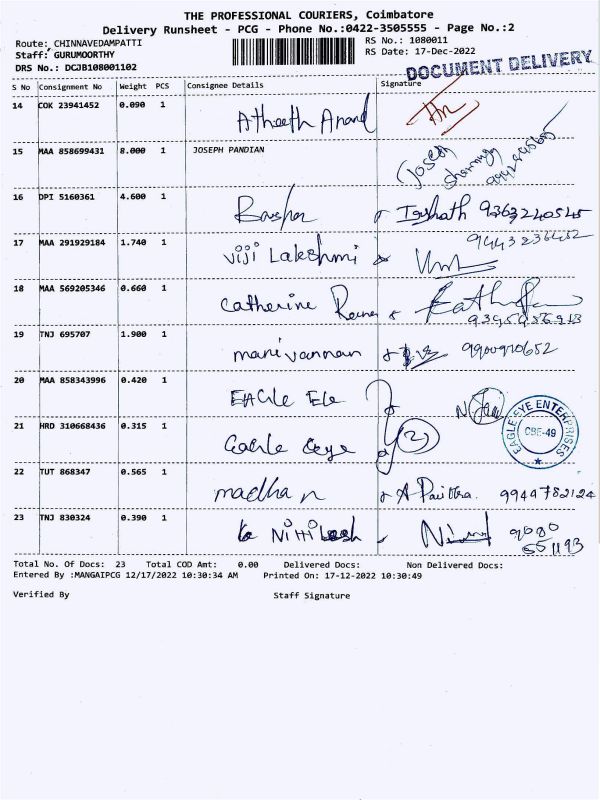 THE PROFESSIONAL COURIERS, Coimbatore
Delivery Runsheet - PCG - Phone No.:0422-3505555 - Page No.:2
Route: CHINNAVEDAMPATTI
RS No.: 1080011
Staff: GURUMOORTHY
RS Date: 17-Dec-2022
DRS No.: DCJB108001102
DOCUMENT DELIVERY
S No Consignment No Weight PCS Consignee Details Signature
14 COK 23941452 0.090 1 Atheeth Anand
15 MAA 858699431 8.000 1 JOSEPH PANDIAN Joseph
16 DPI 5160361 4.600 1 9363240545
17 MAA 291929184 1.740 1 Viji Lakshmi 9443236452
18 MAA 569205346 0.660 1 Catherine
19 TNJ 695707 1.900 1 manivannan 9900910652
20 MAA 858343996 0.420 1 EAGLE Ele
21 HRD 310668436 0.315 1 Eagle Eye (2)
EAGLE EYE ENTERPRISES CBE-49
22 TUT 868347 0.565 1 madhan 9944782124
23 TNJ 830324 0.390 1 9080
551193
Total No. Of Docs: 23 Total COD Amt: 0.00 Delivered Docs: Non Delivered Docs:
Entered By :MANGAIPCG 12/17/2022 10:30:34 AM Printed On: 17-12-2022 10:30:49
Verified By Staff Signature